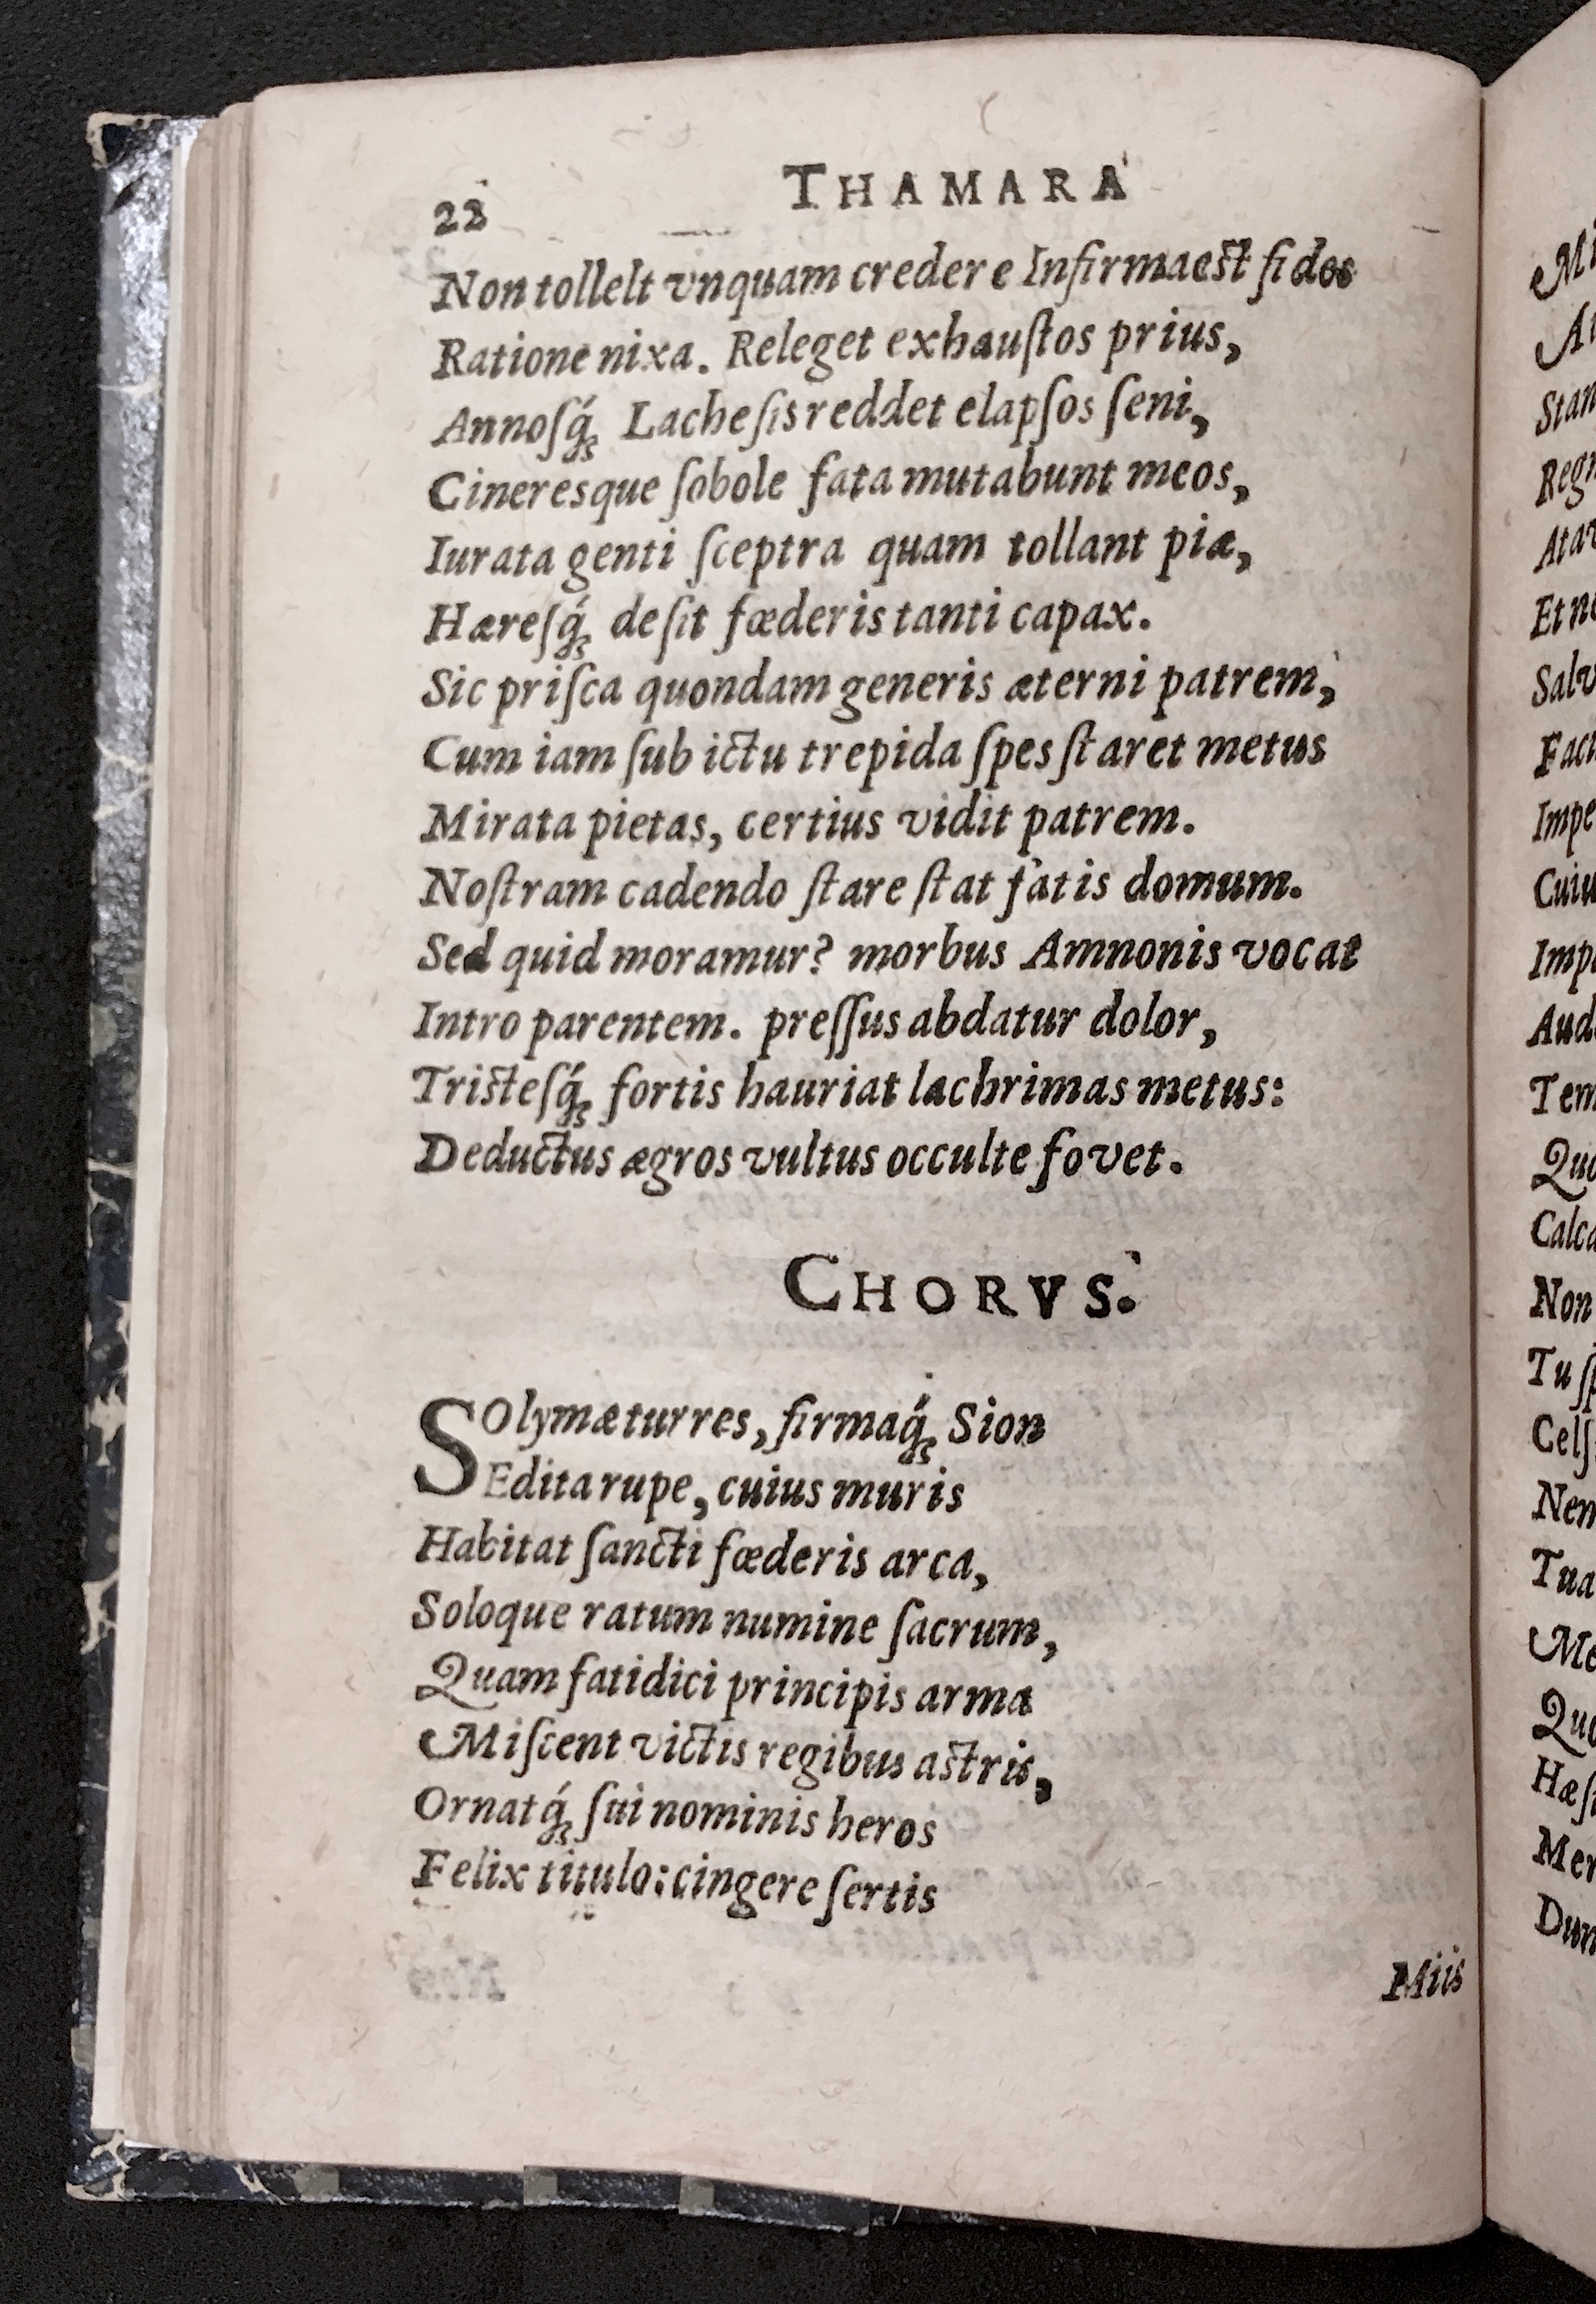 22 THAMARA
Non tollelt vnquam credere Infirma est fides
Ratione nixa. Releget exhauſtos prius,
Annoſq́ꝫ Lacheſis reddet elapſos ſeni,
Cineresque ſobole fata mutabunt meos,
Iurata genti ſceptra quam tollant piæ,
Hæreſq́ꝫ deſit fœderis tanti capax.
Sic priſca quondam generis æterni patrem,
Cum iam ſub ictu trepida ſpes ſtaret metus
Mirata pietas, certius vidit patrem.
Noſtram cadendo ſtare ſtat fatis domum.
Sed quid moramur? morbus Amnonis vocat
Intro parentem. preſſus abdatur dolor,
Tristeſq́ꝫ fortis hauriat lachrimas metus:
Deductus ægros vultus occulte fovet.
CHORVS.
SOlymæ turres, firmaq́ꝫ Sion
Edita rupe, cuius muris
Habitat ſancti fœderis arca,
Soloque ratum numine ſacrum,
Quam fatidici principis arma
Miſcent victis regibus astris,
Ornatq́ꝫ ſui nominis heros
Felix titulo: cingere ſertis
Miis
Stan
Regn
Et n
Salv
Fact
Impe
Cuiu
Imp
Aud
Tem
Quo
Calca
Non
Tu ſp
Celſ
Nem
Tua
Me
Quo
Hæſ
Mer
Dum